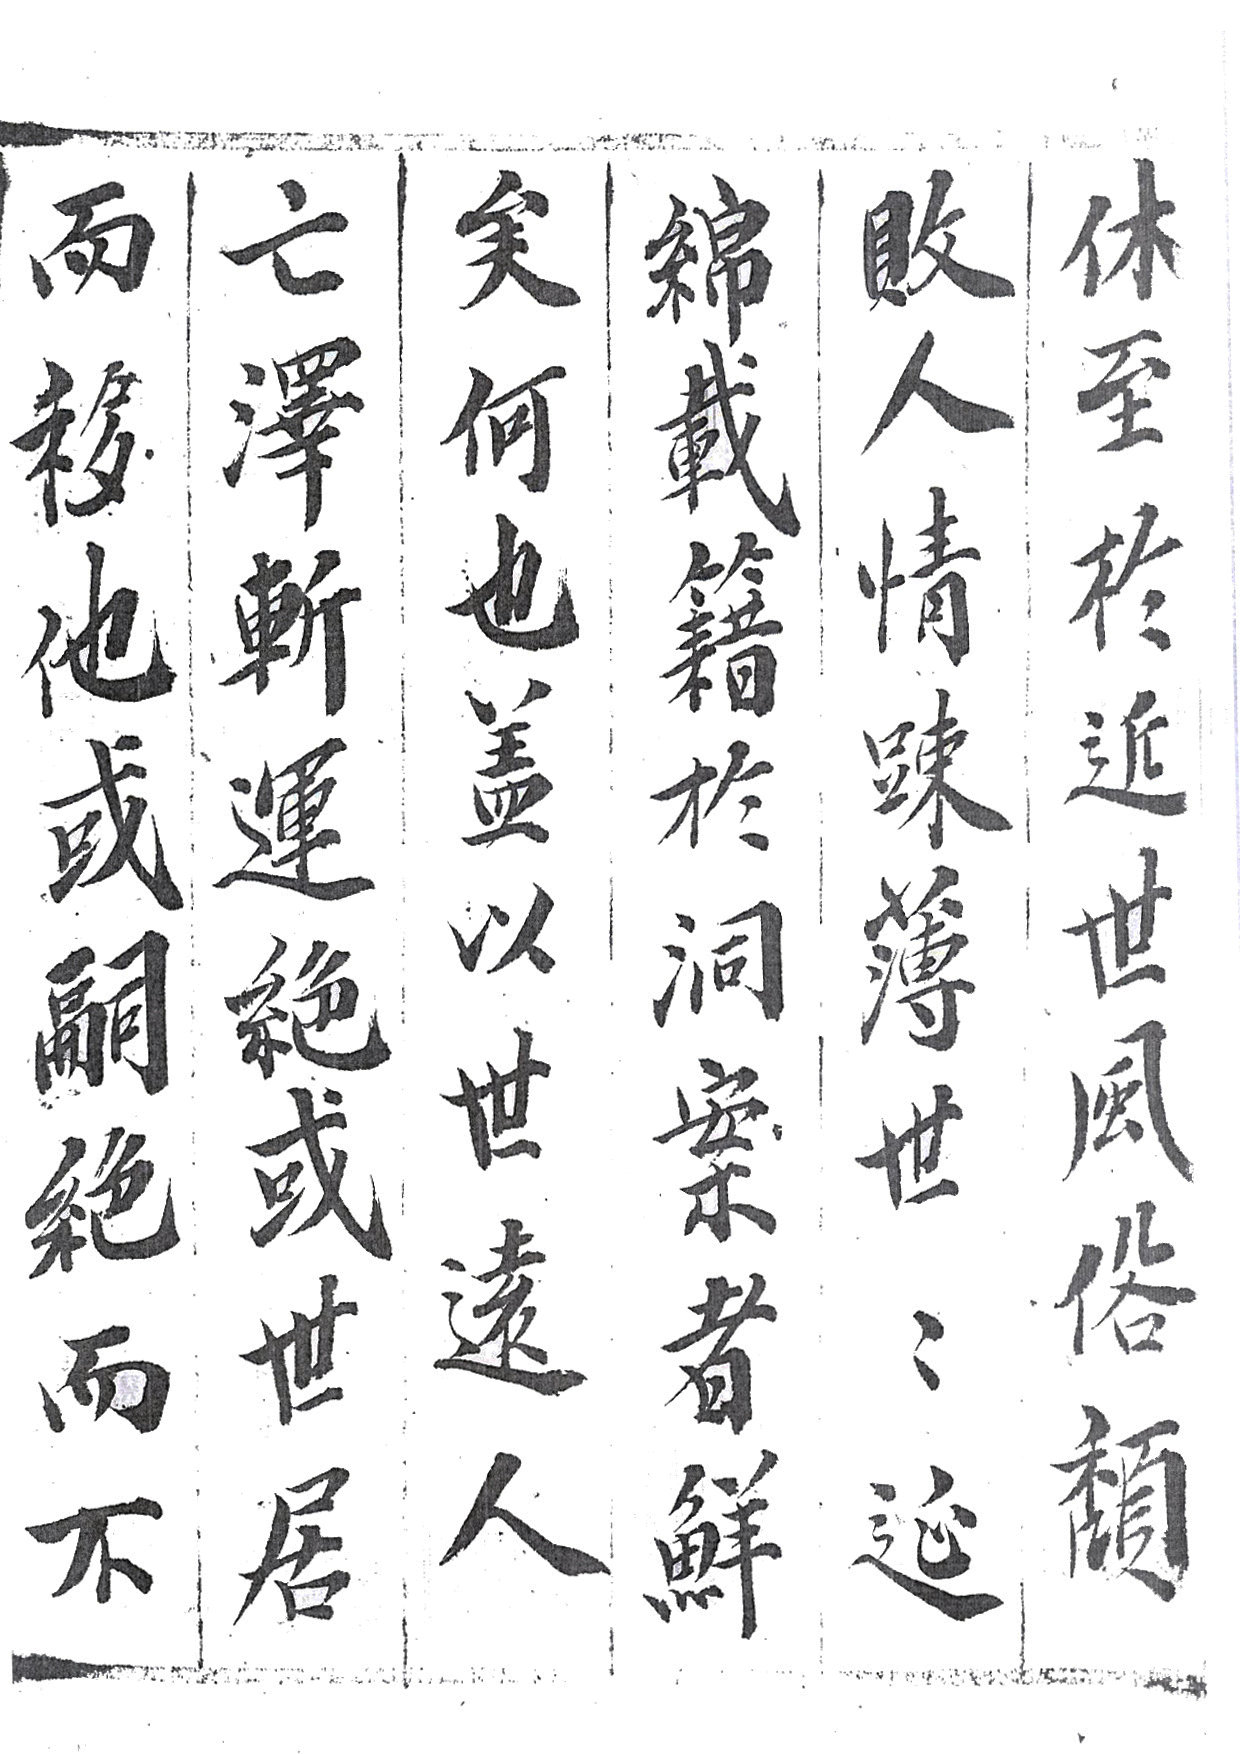 休至於近世風俗頹
敗人情踈薄世〻延
綿載籍於洞案者鮮
矣何也盖以世遠人
亡澤斬運絶或世居
而移他或嗣絶而不